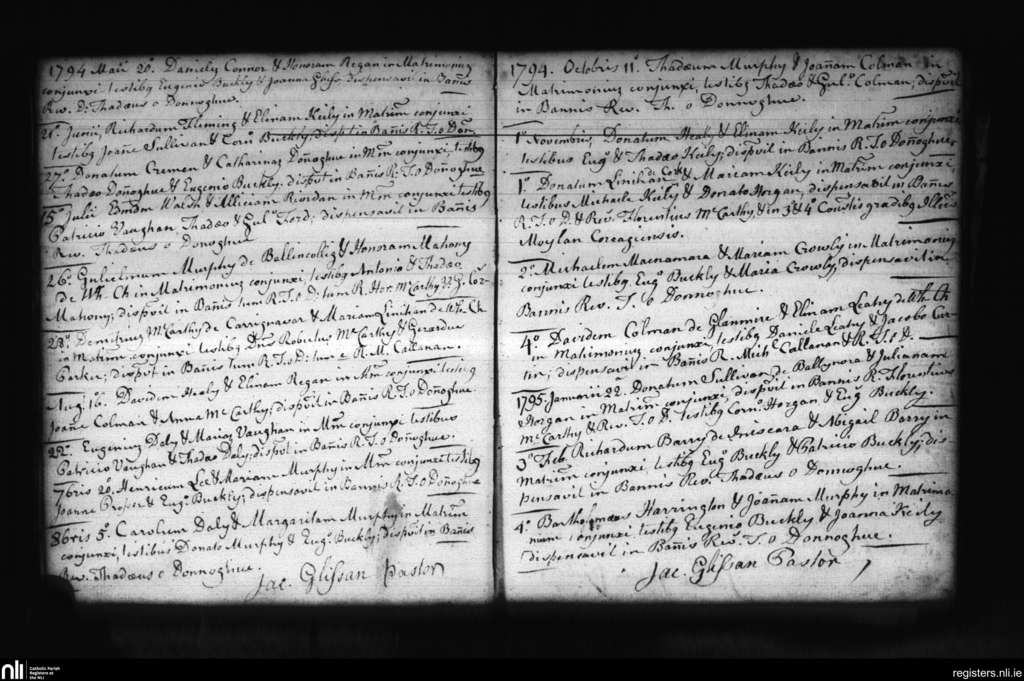 1794 Maii 20. Daniely Connor & Honoram Regan in Matrimoniu
conjunxi, testibq Eugenio Buckly & Joanna dispensavit in Bañis
Rev. D. Thadæus o Donnoghue.
21º Junij Richardum Fleming & Elinam Keily in Matrim conjunxi
testibq Joañe Sullivan & Corn Buckly; Bañis R. T. o Don
27º Donatum Cremen & Catharinas Doñoghue in Mm conjunxi, testibq
Thadæo Doñoghue & Eugenio Buckly; dispvit in Bañis R. T. o Doñoghue
15º Julii Edmdm Walsh & Alliciam Riordan in Mm conjunxi testibq
Patricio Vaughan, Thadæo & Gul. Ford; dispensavit in Bañis
Rev. Thadæus o Donoghue
26º Gulielmum Murphy de Ballincollig & Honoram Mahony
de Wh. Ch in Matrimoniuz conjunxi, testibq Antonio & Thadæo
Mahony; dispvit in Bañis tum R. T. o D: tum R. McCarthy
28º Demetriuz McCarthy de Carrignavar & Mariam Linihan de Wh. Ch
in Matrim conjunxi testibq Robertus McCarthy & Gerardus
Barker; dispvit in Bañis tum R. T. o D: tum R. M. Callanan.
Aug. 16. Davidem Healy & Elinam Regan in Mm conjunxi testibq
Joane Colman & Anna McCarthy; dispvit in Bañis R. T. o Doñoghue.
22º Eugeniuz Daly & Mariaz Vaughan in Mm conjunxi testibus
Patricio Vaughan & Thadæo Daly; dispvit in Bañis R. T. o Donoghue.
7bris 20. Henricum Lee & Mariam Murphy in Mm conjunxi testibq
Joanne Prosser & Eug. Buckly; dispensavit in Bannis R. T. o Doñoghue
8bris 5º Carolum Daly & Margaritam Murphy in Matrim
conjunxi, testibus Donato Murphy & Eug. Buckly; dispvit in Bañis
Rev. Thadæus o Donnoghue.
Jac. Glissan Pastor
1794. Octobris 11º Thadæum Murphy & Joañam Colman in
Matrimoniuz conjunxi, testibq Thadæo & Gul. Colman; dispvit
in Bannis Rev. Th. o Donnoghue.
1º Novembris, Donatum Healy & Elinam Keily in Matrim conjunxi
testibus Eug. & Thadæo Keily; dispvit in Bannis R. T. o Doñoghue
1º Donatum Linihan de Cork & Mariam Keily in Matrim conjunxi,
testibus Michaele Keily & Donato Horgan, dispensavit in Bañis
R. T. o D. & Rev. Florentius McCarthy & in 3 & 4º gradibq
Moylan Corcagiensis.
2º Michaelem Macnamara & Mariam Crowly in Matrimoniuz
conjunxi testibq Eug. Buckly & Maria Crowly dispensavit in
Bannis Rev. T. o Donnoghue.
4º Davidem Colman de Glanmire & Elinam Leahy de Wh. Ch
in Matrimonium conjunxi, testibq Daniele Leahy & Jacobo Cur-
tin; dispensavit in Bañis R. Michl Callanan & R. T. o D.
1795. Januarii 22. Donatum Sullivan de Ballymora & Julianam
Horgan in Matrim conjunxi, dispvit in Bannis R. Florentius
McCarthy & Rev. T. o D. testibq Corn. Horgan & Eug. Buckly.
3º Feb. Richardum Barry de Iniscara & Abigail Barry in
Matrim conjunxi, testibq Eug. Buckly & Patricio Buckly; dis-
pensavit in Bannis Rev. Thadæus o Donnoghue.
4º Bartholomæus Harrington & Joañam Murphy in Matrimo-
nium conjunxi, testibq Eugenio Buckly & Joanna Keily
dispensavit in Bañis Rev. T. o Donnoghue.
Jac. Glissan Pastor
nli
Catholic Parish
Registers at
the NLI
registers.nli.ie